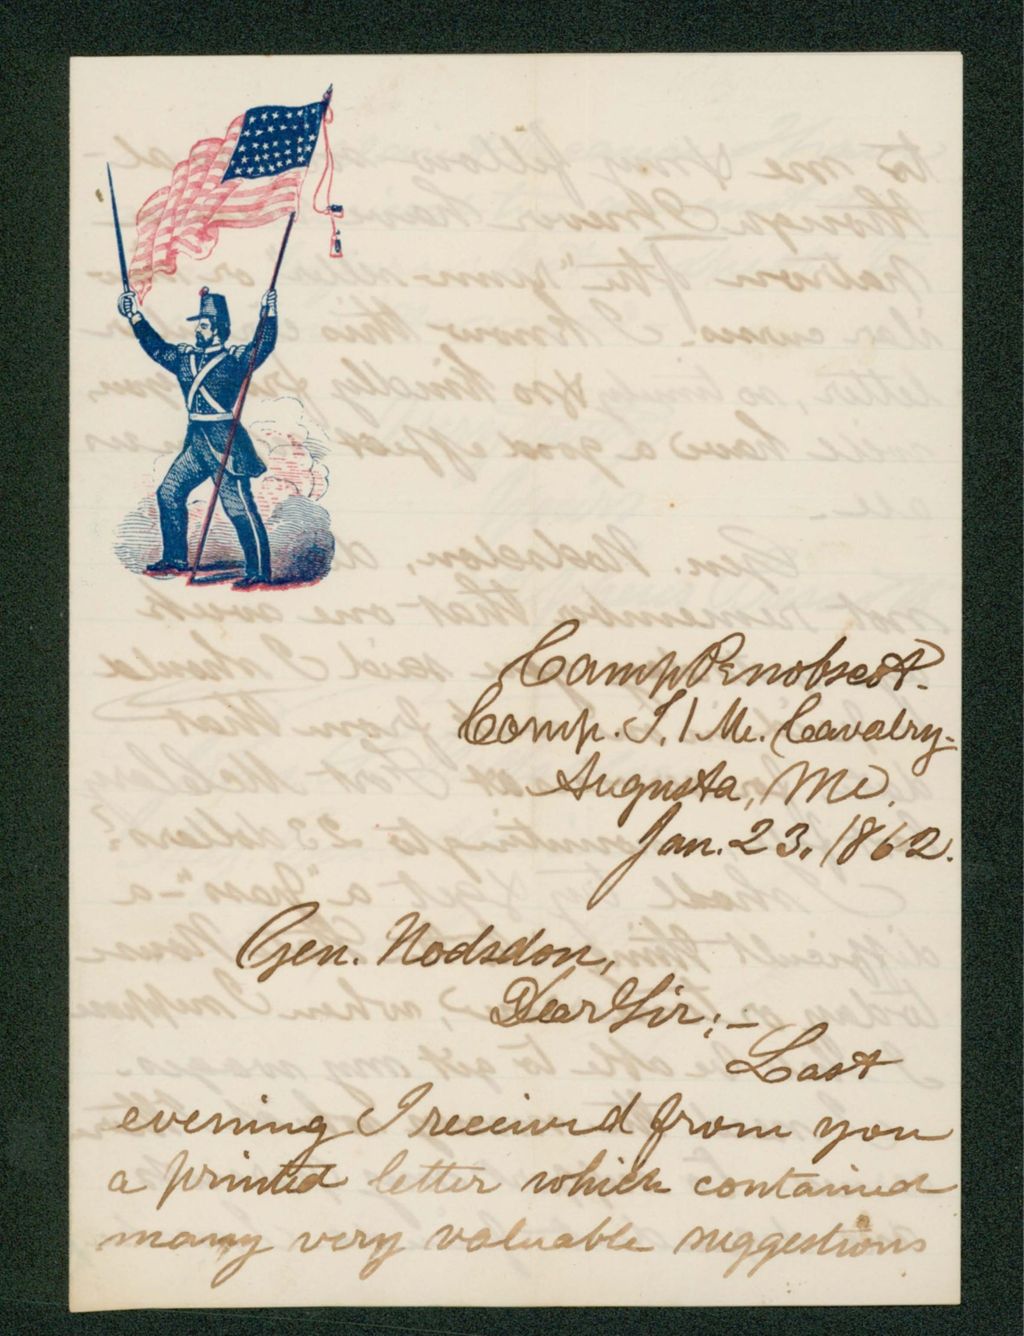 Camp Penobscot.
Comp. I. 1 Me. Cavalry.
Augusta, Me.
Jan. 23, 1862.
Gen. Hodsdon,
Dear Sir;—
Last
evening I received from you
a printed letter which contained
many very valuable suggestions